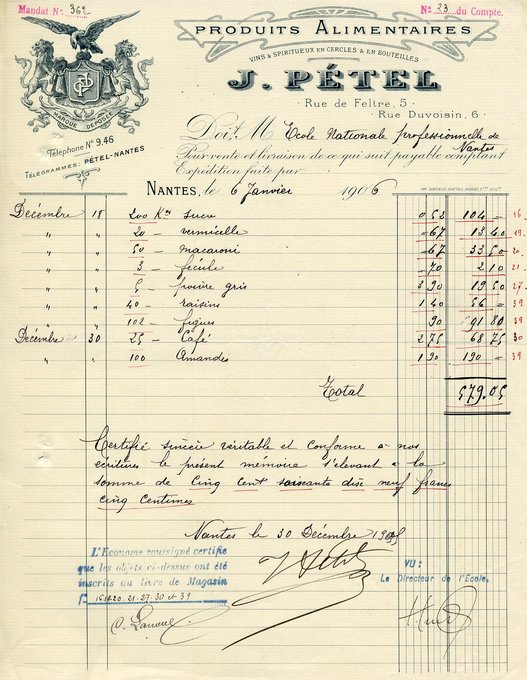 Mandat No 362
No 23 du Compte.
PRODUITS ALIMENTAIRES
VINS & SPIRITUEUX EN CERCLES & EN BOUTEILLES
J. PÉTEL
Rue de Feltre, 5
Rue Duvoisin, 6
JP
MARQUE DÉPOSÉE
Téléphone No 9.46
TÉLÉGRAMMES: PÉTEL-NANTES
Doit M Ecole Nationale professionnelle de Nantes
Pour vente et livraison de ce qui suit payable comptant
Expédition faite par
NANTES, le 6 Janvier 1906
Décembre 18 200 Kos Sucre 0 52 104 — 16
" " 20 — vermicelle — 67 13 40 19
" " 50 — macaroni — 67 33 50 20
" " 3 — fécule — 70 2 10 21
" " 5 — poivre gris 3 90 19 50 27
" " 40 — raisins 1 40 56 — 39
" " 102 — figues 90 91 80 39
Décembre 30 25 — Café 2 75 68 75 30
" " 100 Amandes 1 90 190 — 39
Total 579.05
Certifié sincère véritable et conforme à nos
écritures le présent mémoire s'élevant à la
somme de Cinq Cent soixante dix neuf francs
cinq Centimes
Nantes le 30 Décembre 1905
L'Econome soussigné certifie
que les objets ci-dessus ont été
inscrits au livre de Magasin
fo 16.19.20.21.27.30 et 39
VU:
Le Directeur de l'École,